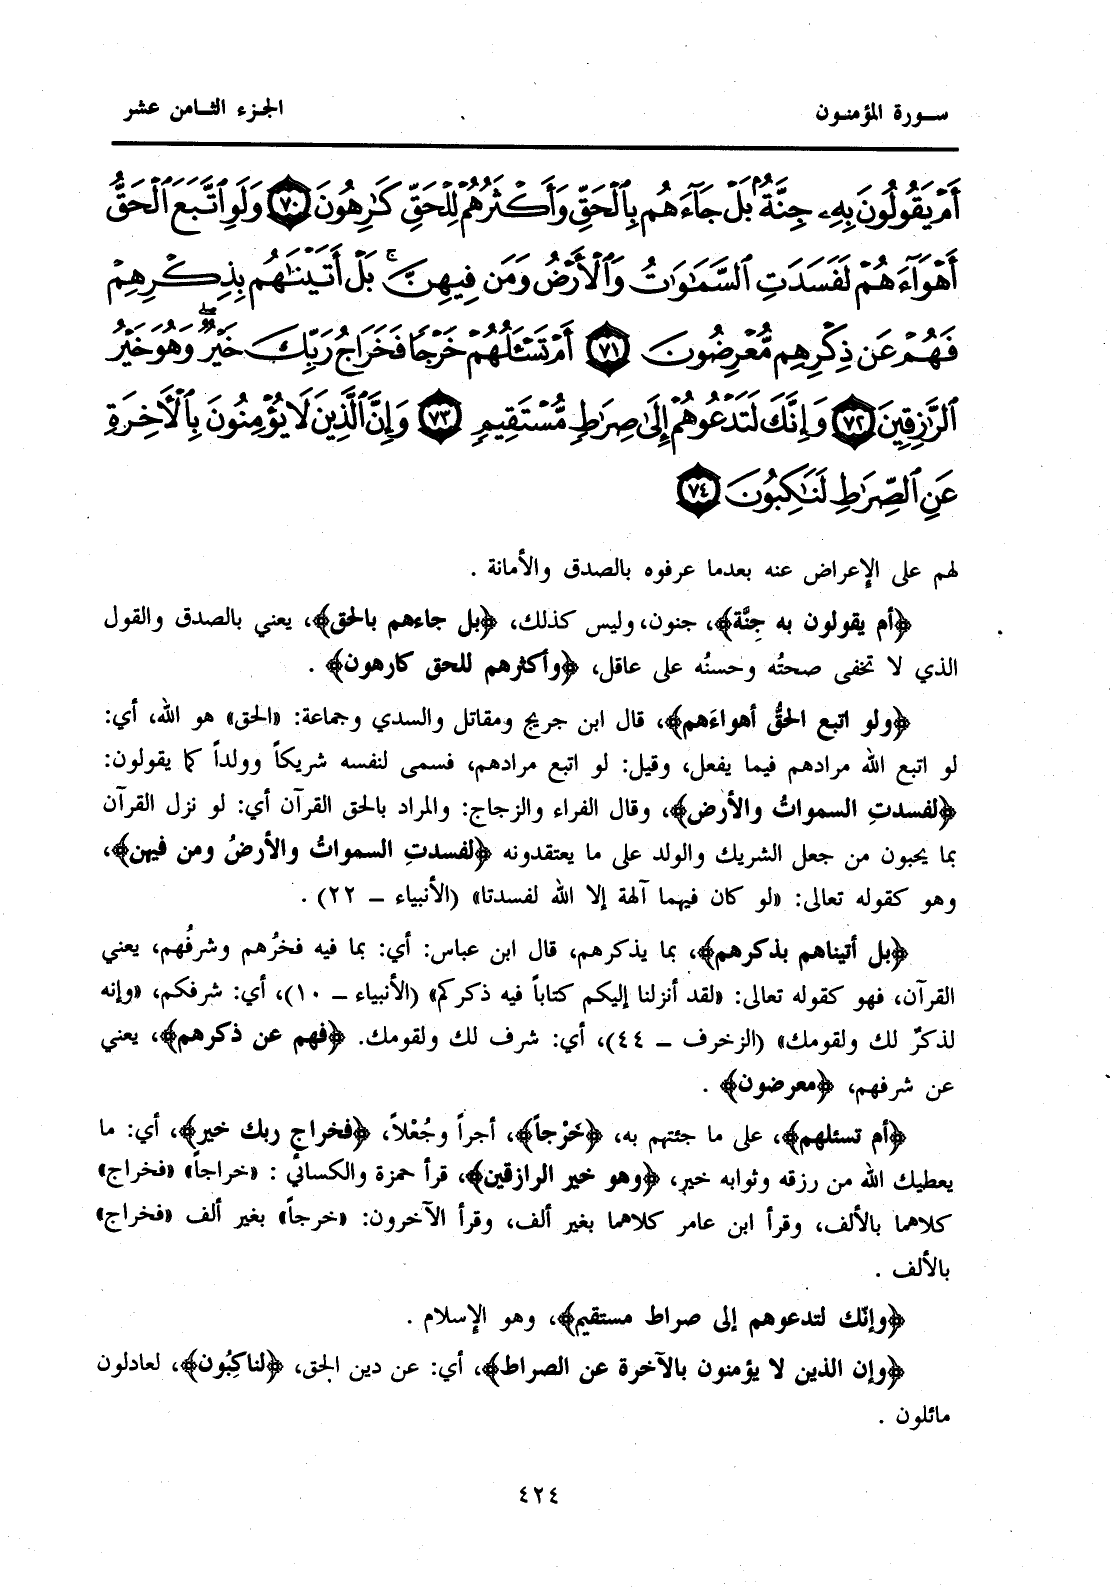 سورة المؤمنون
الجزء الثامن عشر
أَمْ يَقُولُونَ بِهِۦ جِنَّةٌۢ بَلْ جَآءَهُم بِٱلْحَقِّ وَأَكْثَرُهُمْ لِلْحَقِّ كَٰرِهُونَ ٧٠ وَلَوِ ٱتَّبَعَ ٱلْحَقُّ
أَهْوَآءَهُمْ لَفَسَدَتِ ٱلسَّمَٰوَٰتُ وَٱلْأَرْضُ وَمَن فِيهِنَّ ۚ بَلْ أَتَيْنَٰهُم بِذِكْرِهِمْ
فَهُمْ عَن ذِكْرِهِم مُّعْرِضُونَ ٧١ أَمْ تَسْـَٔلُهُمْ خَرْجًا فَخَرَاجُ رَبِّكَ خَيْرٌ ۖ وَهُوَ خَيْرُ
ٱلرَّٰزِقِينَ ٧٢ وَإِنَّكَ لَتَدْعُوهُمْ إِلَىٰ صِرَٰطٍ مُّسْتَقِيمٍ ٧٣ وَإِنَّ ٱلَّذِينَ لَا يُؤْمِنُونَ بِٱلْأَخِرَةِ
عَنِ ٱلصِّرَٰطِ لَنَٰكِبُونَ ٧٤
لهم على الإعراض عنه بعدما عرفوه بالصدق والأمانة .
﴿أم يقولون به جِنَّة﴾، جنون، وليس كذلك، ﴿بل جاءهم بالحق﴾، يعني بالصدق والقول
الذي لا تخفى صحتُه وحسنُه على عاقل، ﴿وأكثرهم للحق كارهون﴾ .
﴿ولو اتبع الحقُّ أهواءَهم﴾، قال ابن جريج ومقاتل والسدي وجماعة: «الحق» هو الله، أي:
لو اتبع الله مرادهم فيما يفعل، وقيل: لو اتبع مرادهم، فسمى لنفسه شريكاً وولداً كما يقولون:
﴿لفسدتِ السمواتُ والأرض﴾، وقال الفراء والزجاج: والمراد بالحق القرآن أي: لو نزل القرآن
بما يحبون من جعل الشريك والولد على ما يعتقدونه ﴿لفسدتِ السمواتُ والأرضُ ومن فيهن﴾،
وهو كقوله تعالى: «لو كان فيهما آلهة إلا الله لفسدتا» (الأنبياء – ٢٢) .
﴿بل أتيناهم بذكرهم﴾، بما يذكرهم، قال ابن عباس: أي: بما فيه فخرُهم وشرفُهم، يعني
القرآن، فهو كقوله تعالى: «لقد أنزلنا إليكم كتاباً فيه ذكركم» (الأنبياء – ١٠)، أي: شرفكم، «وإنه
لذكرٌ لك ولقومك» (الزخرف – ٤٤)، أي: شرف لك ولقومك. ﴿فهم عن ذكرهم﴾، يعني
عن شرفهم، ﴿معرضون﴾ .
﴿أم تسئلهم﴾، على ما جئتهم به، ﴿خَرْجاً﴾، أجراً وجُعْلاً، ﴿فخراج ربك خير﴾، أي: ما
يعطيك الله من رزقه وثوابه خير، ﴿وهو خير الرازقين﴾، قرأ حمزة والكسائي : «خراجاً» «فخراج»
كلاهما بالألف، وقرأ ابن عامر كلاهما بغير ألف، وقرأ الآخرون: «خرجاً» بغير ألف «فخراج»
بالألف .
﴿وإنّك لتدعوهم إلى صراط مستقيم﴾، وهو الإسلام .
﴿وإن الذين لا يؤمنون بالآخرة عن الصراط﴾، أي: عن دين الحق، ﴿لناكِبُون﴾، لعادلون
مائلون .
٤٢٤